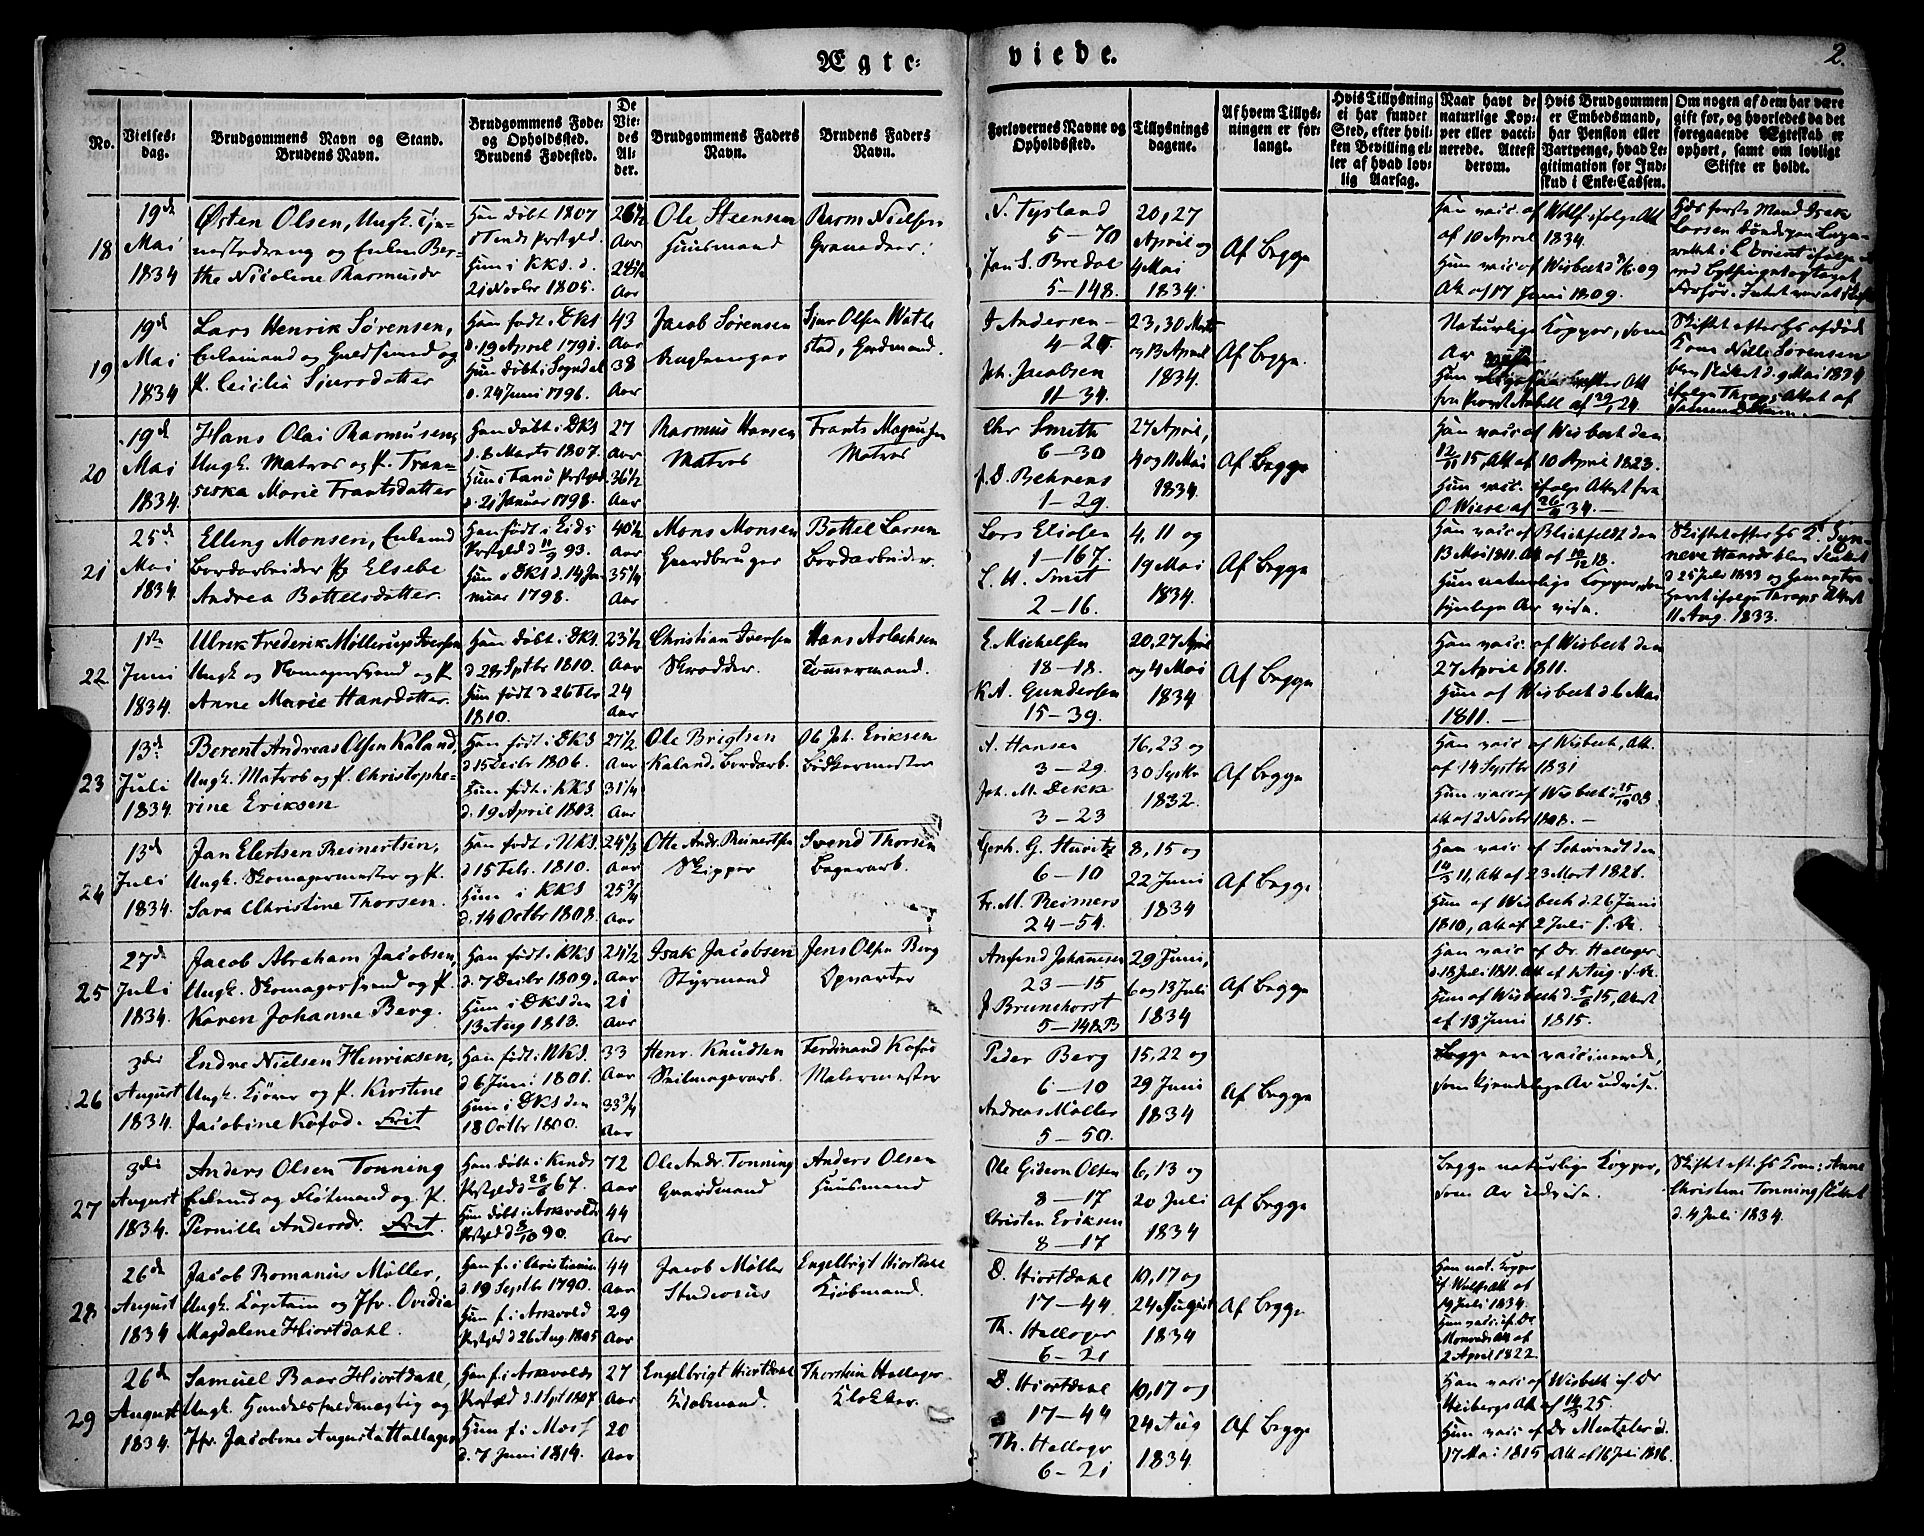 Ægte-
viede.
2.
No.
Vielses-
dag.
Brudgommens Navn og Stand.
Brudens Navn.
Brudgommens Føde-
og Opholdssted.
Brudens Fødested.
De
Vie-
des
Al-
der.
Brudgommens Faders
Navn.
Brudens Faders
Navn.
Forlovernes Navne og
Opholdssted.
Tillysnings
dagene.
Af hvem Tillys-
ningen er for-
langt.
Hvis Tillysning
ei har fundet
Sted, efter hvil-
ken Bevilling el-
ler af hvad lov-
lig Aarsag.
Naar havt de
naturlige Kop-
per eller vacci-
nerede. Attest
derom.
Hvis Brudgommen
er Embedsmand,
har Pension eller
Vartpenge, hvad Le-
gitimation for Ind-
skud i Enke-Cassen.
Om nogen af dem har være
gift før, og hvorledes da det
foregaaende Ægteskab er
ophørt, samt om lovligt
Skifte er holdt.
18
19de
Mai
1834
Østen Olsen, Ungk. Tje-
nestedreng og Enken Ber-
the Nicoline Rasmusdr
Han døbt 1807
Hun i KKS. d.
21 Novbr 1805.
26½
Aar
28½
Aar
Ole Steensen
Huusmand
Rasm Nielsen
N. Tysland
5-70
Jan S. Bredal
5-148.
20, 27
April og
4 Mai
1834.
Af Begge
Han vacc af Wolf ifølge Att
af 10 April 1834.
Hun vacc af Wisbech d
Att af 17 Juni 1809.
19
19de
Mai
1834
Lars Henrik Sørensen,
Enkemand og Guldsmed og
P. Cecilia Sjursdatter
Han født i DKS
d. 19 April 1791.
Hun døbt i Sogndal
d. 24 Juni 1796.
43
Aar
38
Aar
Jacob Sørensen
Sjur Olsen Watle
stad, Gardmand.
J Andersen
4-20.
Joh. Jacobsen
11-34.
23, 30 Marts
og 13 April
1834.
Af Begge.
Naturlige Kopper, som
Ar
Skiftet efter Hs afdøde
Kone Nille Sørensen
d. 9 Mai 1834
20
19de
Mai
1834
Hans Olai Rasmusen,
Ungk. Matros og P. Fran-
siska Marie Frantsdatter
Han døbt i DKS
d. 8 Marts 1807.
Hun i Fanø Præstgd
d. 21 Januar 1798.
27
Aar
36½
Aar
Rasmus Hansen
Matros
Frants Magnusen
Matros
Chr Smith
6-30
J. D. Behrens
1-29.
27 April,
4 og 11 Mai
1834.
Af Begge
Han vacc af Wisbech den
12/11 15, Att af 10 April 1823.
Hun vacc. ifølge Attest fra
O Wiese af 26/4 34.
21
25de
Mai
1834
Elling Monsen, Enkemd
Bordarbeider P Elsebe
Andrea Bottelsdatter
Han født i Eids
Prstgld d 11/9 93.
Hun i DKS d. 14 Ja
nuar 1798.
40½
Aar
35¼
Aar
Mons Monsen
Gaardbruger
Bottel Larsen
Bordarbeider.
Lars Eliesen
1-167.
L. H. Smit
2-16.
4, 11 og
19 Mai
1834.
Af Begge
Han vacc af Blichfeldt den
13 Mai 1811. Att af 10/12 18.
Hun naturlige Kopper, som
synlige Ar vise.
Skiftet efter Hs K. Syn-
neve Hansdr blev sluttet
d 25 Juli 1833
11 Aug. 1833.
22
1ste
Juni
1834.
Ulrik Frederik Möllerup Iversen
Ungk og Skomagersvend og P
Anne Marie Hansdatter.
Han døbt i DKS.
d 28 Septbr 1810.
Hun født d 26 Fbr
1810.
23½
Aar
24
Aar
Christian Iversen
Skrædder.
Hans Aslachsen
Tømmermand.
E. Michelsen
18-18.
K A. Gundersen
15-39.
20, 27 April
og 4 Mai
1834
Af Begge
Han vacc. af Wisbech den
27 April 1811.
Hun af Wisbech d 6 Mai
1811.
23
13de
Juli
1834
Berent Andreas Olsen Kaland,
Ungk. Matros og P. Christophe-
rine Eriksen
Han født i DKS
d 15 Decbr 1806.
Hun født i KKS
d. 19 April 1803.
27½
Aar
31¼
Aar
Ole Brigtsen
Kaland, Bordarb.
Ole Joh. Eriksen
Bødkermester
A. Hansen
3-29.
Joh. M. Dekke
3-23
16, 23 og
30 Septbr
1832.
Af Begge
Han vacc af Wisbech, Att.
af 14 Septbr 1831
Hun vacc af Wisbech d 15/10 08
Att af 2 Novbr 1808.
24
13de
Juli
1834.
Jan Elertsen Reinertsen,
Ungk. Skomagermester og P.
Sara Christine Thorsen.
Han født i NKS.
d 15 Febr. 1810.
Hun i KKS
d. 14 Octbr 1808.
24⅓
Aar
25¾
Aar
Otte Andr. Reinertsen
Skipper
Svend Thorsen
Bagerarb.
Gerh. G. Hviritz
6-10
Fr. M. Reimers
24-54.
8, 15 og
22 Juni
1834
Af Begge
Han vacc af Schwindt den
14/3 11, Att af 23 Mart 1826.
Hun af Wisbech d. 26 Juni
1810, Att af 2 Juli s. A.
25
27de
Juli
1834.
Jacob Abraham Jacobsen,
Ungk. Skomagersvend og P.
Karen Johanne Berg.
Han født i KKS
d. 7 Decbr 1809.
Hun i DKS den
13 Aug 1813.
24½
Aar
21
Aar
Isak Jacobsen
Styrmand
Jens Olsen Berg
Opvarter
Amfind Johannesen
23-15
J Brunchorst
5-142 B
29 Juni,
6 og 13 Juli
1834
Af Begge
Han vacc af Dr. Hallager
d. 18 Juli 1811. Att af 1 Aug. s. A.
Hun af Wisbech d. 5/6 15, Attest
af 18 Juni 1815.
26
3die
August
1834.
Endre Nielsen Henriksen,
Ungk. Kjører og P. Kirstine
Jacobine Kofod. Frit
Han født i NKS.
d 6 Juni 1801.
Hun i DKS den
18 Octbr 1800.
33
Aar
33¾
Aar
Henr. Knudsen
Seilmagerarb.
Ferdinand Kofod
Malermester
Peder Berg
6-10
Andreas Möller
5-50.
15, 22 og
29 Juni
1834
Af Begge
Begge ere vaccinerede,
som kjendelige Ar udvise.
27
3die
August
1834.
Anders Olsen Tonning
Enkemd og Flötmand og P.
Pernille Andersdr. Frit.
Han døbt i Kinds
Prstgld d 28/6 67.
Hun døbt i Askvolds
Prstgld d 8/10 90.
72
Aar
44
Aar
Ole Andr. Tonning
Gaardmand
Anders Olsen
Huusmand
Ole Gideon Olsen
8-17
Christen Eriksen
8-17
6, 13 og
20 Juli
1834
Af Begge
Begge naturlige Kopper,
som Ar udvise.
Skiftet eft. Hs Kone: Anne
Christine Tonning sluttet
d. 4 Juli 1834.
28
26de
August
1834
Jacob Romanus Möller,
Ungk. Capitain og Jfr. Ovedia
Magdalene Hiortdahl.
Han f. i Christiania
d. 19 Septbr 1790.
Hun f. i Askvold
Prstgld d 26 Aug. 1805
44
Aar
29
Aar
Jacob Möller
Studiosus
Engelbrigt Hiortdahl
Kjøbmand.
D. Hiortdahl
17-44.
Th. Hallager
6-21
10, 17 og
24 August
1834
Af Begge
Han nat. Kopper
if. Wulfs Att af
19 Juli 1834.
Hun vacc. if. Dr
Monrads Att af
2 April 1822.
29
26de
August
1834.
Samuel Baar Hiortdahl,
Ungk. Handelsfuldmægtig og
Jfr. Jacobine Augusta Hallager
Han f. i Askvolds
Prstgld d. 1 Spt 1807.
Hun f. i Moss
d. 7 Juni 1814.
27
Aar
20
Aar
Engelbrigt Hiortdahl
Kjøbmand.
Thorstein Hallager
Klokker.
D. Hiortdahl
17-44
Th. Hallager
6-21
10, 17 og
24 Aug
1834
Af Begge
Han vacc af Wisbech if. Dr
Heibergs Att af 14/3 25.
Hun vacc af Dr Mentzler d.
17 Mai 1815 Att af 16 Juli 1816.